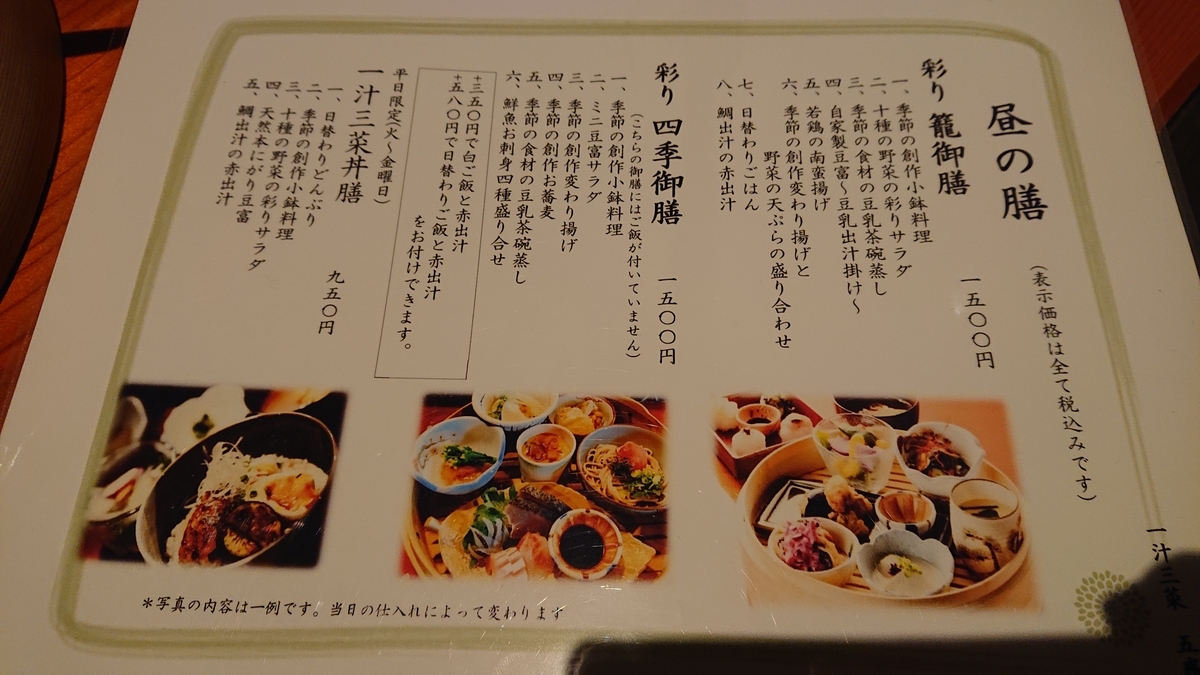 昼の膳
(表示価格は全て税込みです)
彩り 籠御膳 一五〇〇円
一、季節の創作小鉢料理
二、十種の野菜の彩りサラダ
三、季節の食材の豆乳茶碗蒸し
四、自家製豆富～豆乳出汁掛け～
五、若鶏の南蛮揚げ
六、季節の創作変わり揚げと
野菜の天ぷらの盛り合わせ
七、日替わりごはん
八、鯛出汁の赤出汁
彩り 四季御膳 一五〇〇円
(こちらの御膳にはご飯が付いていません)
一、季節の創作小鉢料理
二、ミニ豆富サラダ
三、季節の創作変わり揚げ
四、季節の創作お蕎麦
五、季節の食材の豆乳茶碗蒸し
六、鮮魚お刺身四種盛り合せ
+三五〇円で白ご飯と赤出汁
+五八〇円で日替わりご飯と赤出汁
をお付けできます。
平日限定(火～金曜日)
一汁三菜丼膳 九五〇円
一、日替わりどんぶり
二、季節の創作小鉢料理
三、十種の野菜の彩りサラダ
四、天然本にがり豆富
五、鯛出汁の赤出汁
*写真の内容は一例です。当日の仕入れによって変わります
一汁三菜